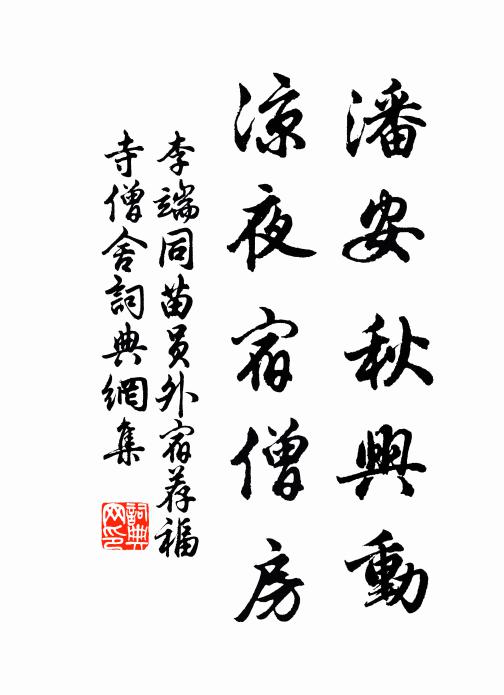 潘安秋興動
凉夜宿僧房
李端同苗员外宿荐福
寺僧舍詞典網集
詞典
网印